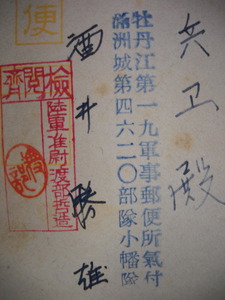 便
兵卫殿
牡丹江第一九軍事郵便所氣付
満洲城第四六二〇部隊小幡隊
酒井勝雄
檢閲齊
陸軍准尉渡部哲造